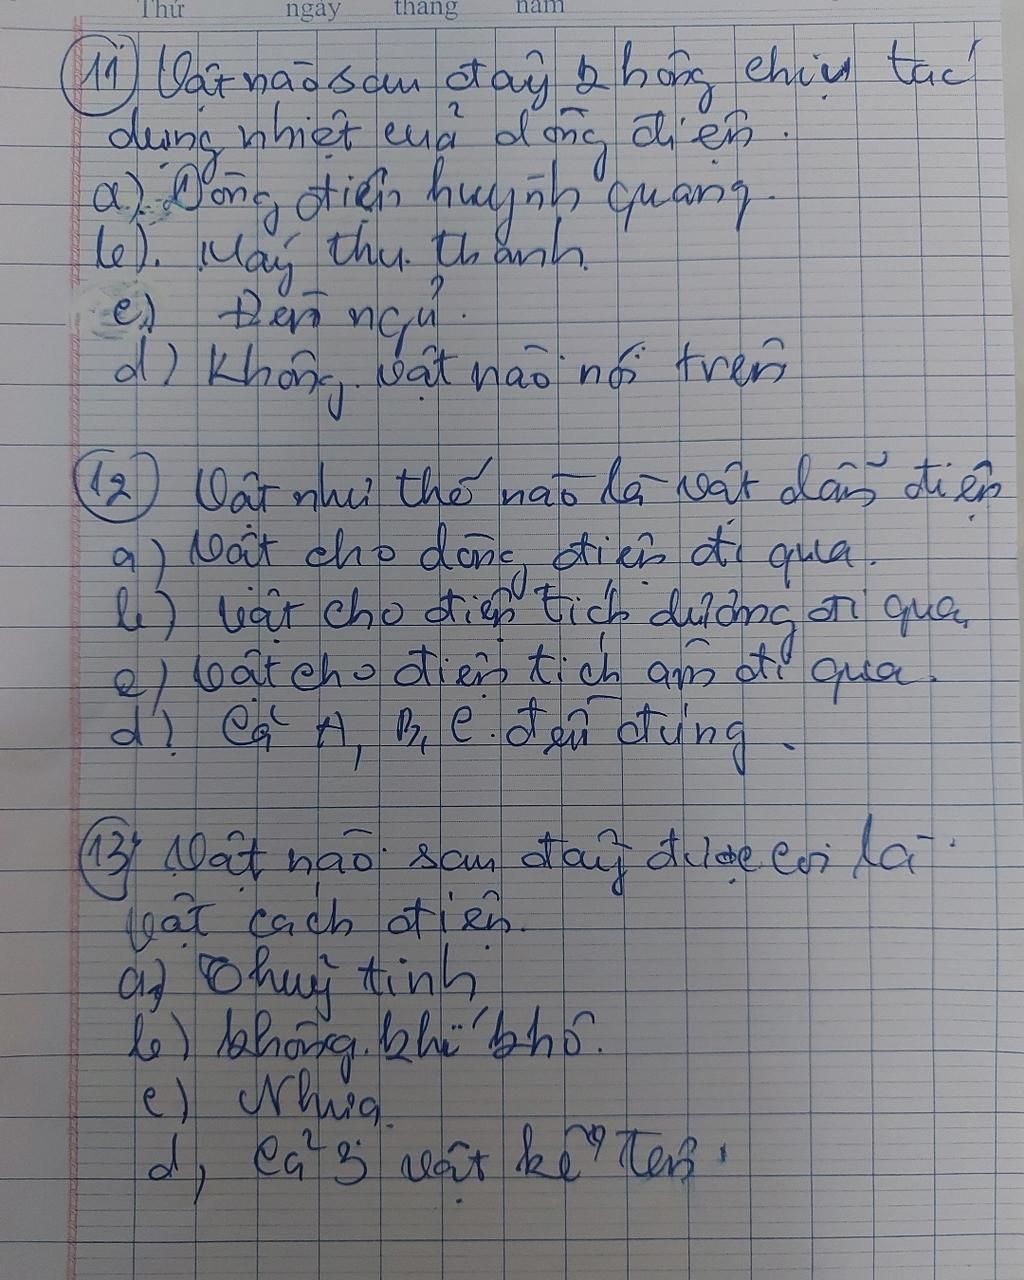 Thứ ngày tháng năm
11 Vật nào sau đây không chịu tác
dụng nhiệt của dòng điện.
a) Dòng điện huỳnh quang.
b). Máy thu thanh.
c) Đèn ngủ.
d) Không vật nào nói trên
12 Vật như thế nào là vật dẫn điện
a) Vật cho dòng điện đi qua.
b) Vật cho điện tích dương đi qua,
c) Vật cho điện tích âm đi qua.
d) Cả A, B, C. đều đúng.
13 Vật nào sau đây được coi là
vật cách điện.
a) Thuỷ tinh
b) không khí khô.
c) Nhựa.
d, Cả 3 vật kể trên.